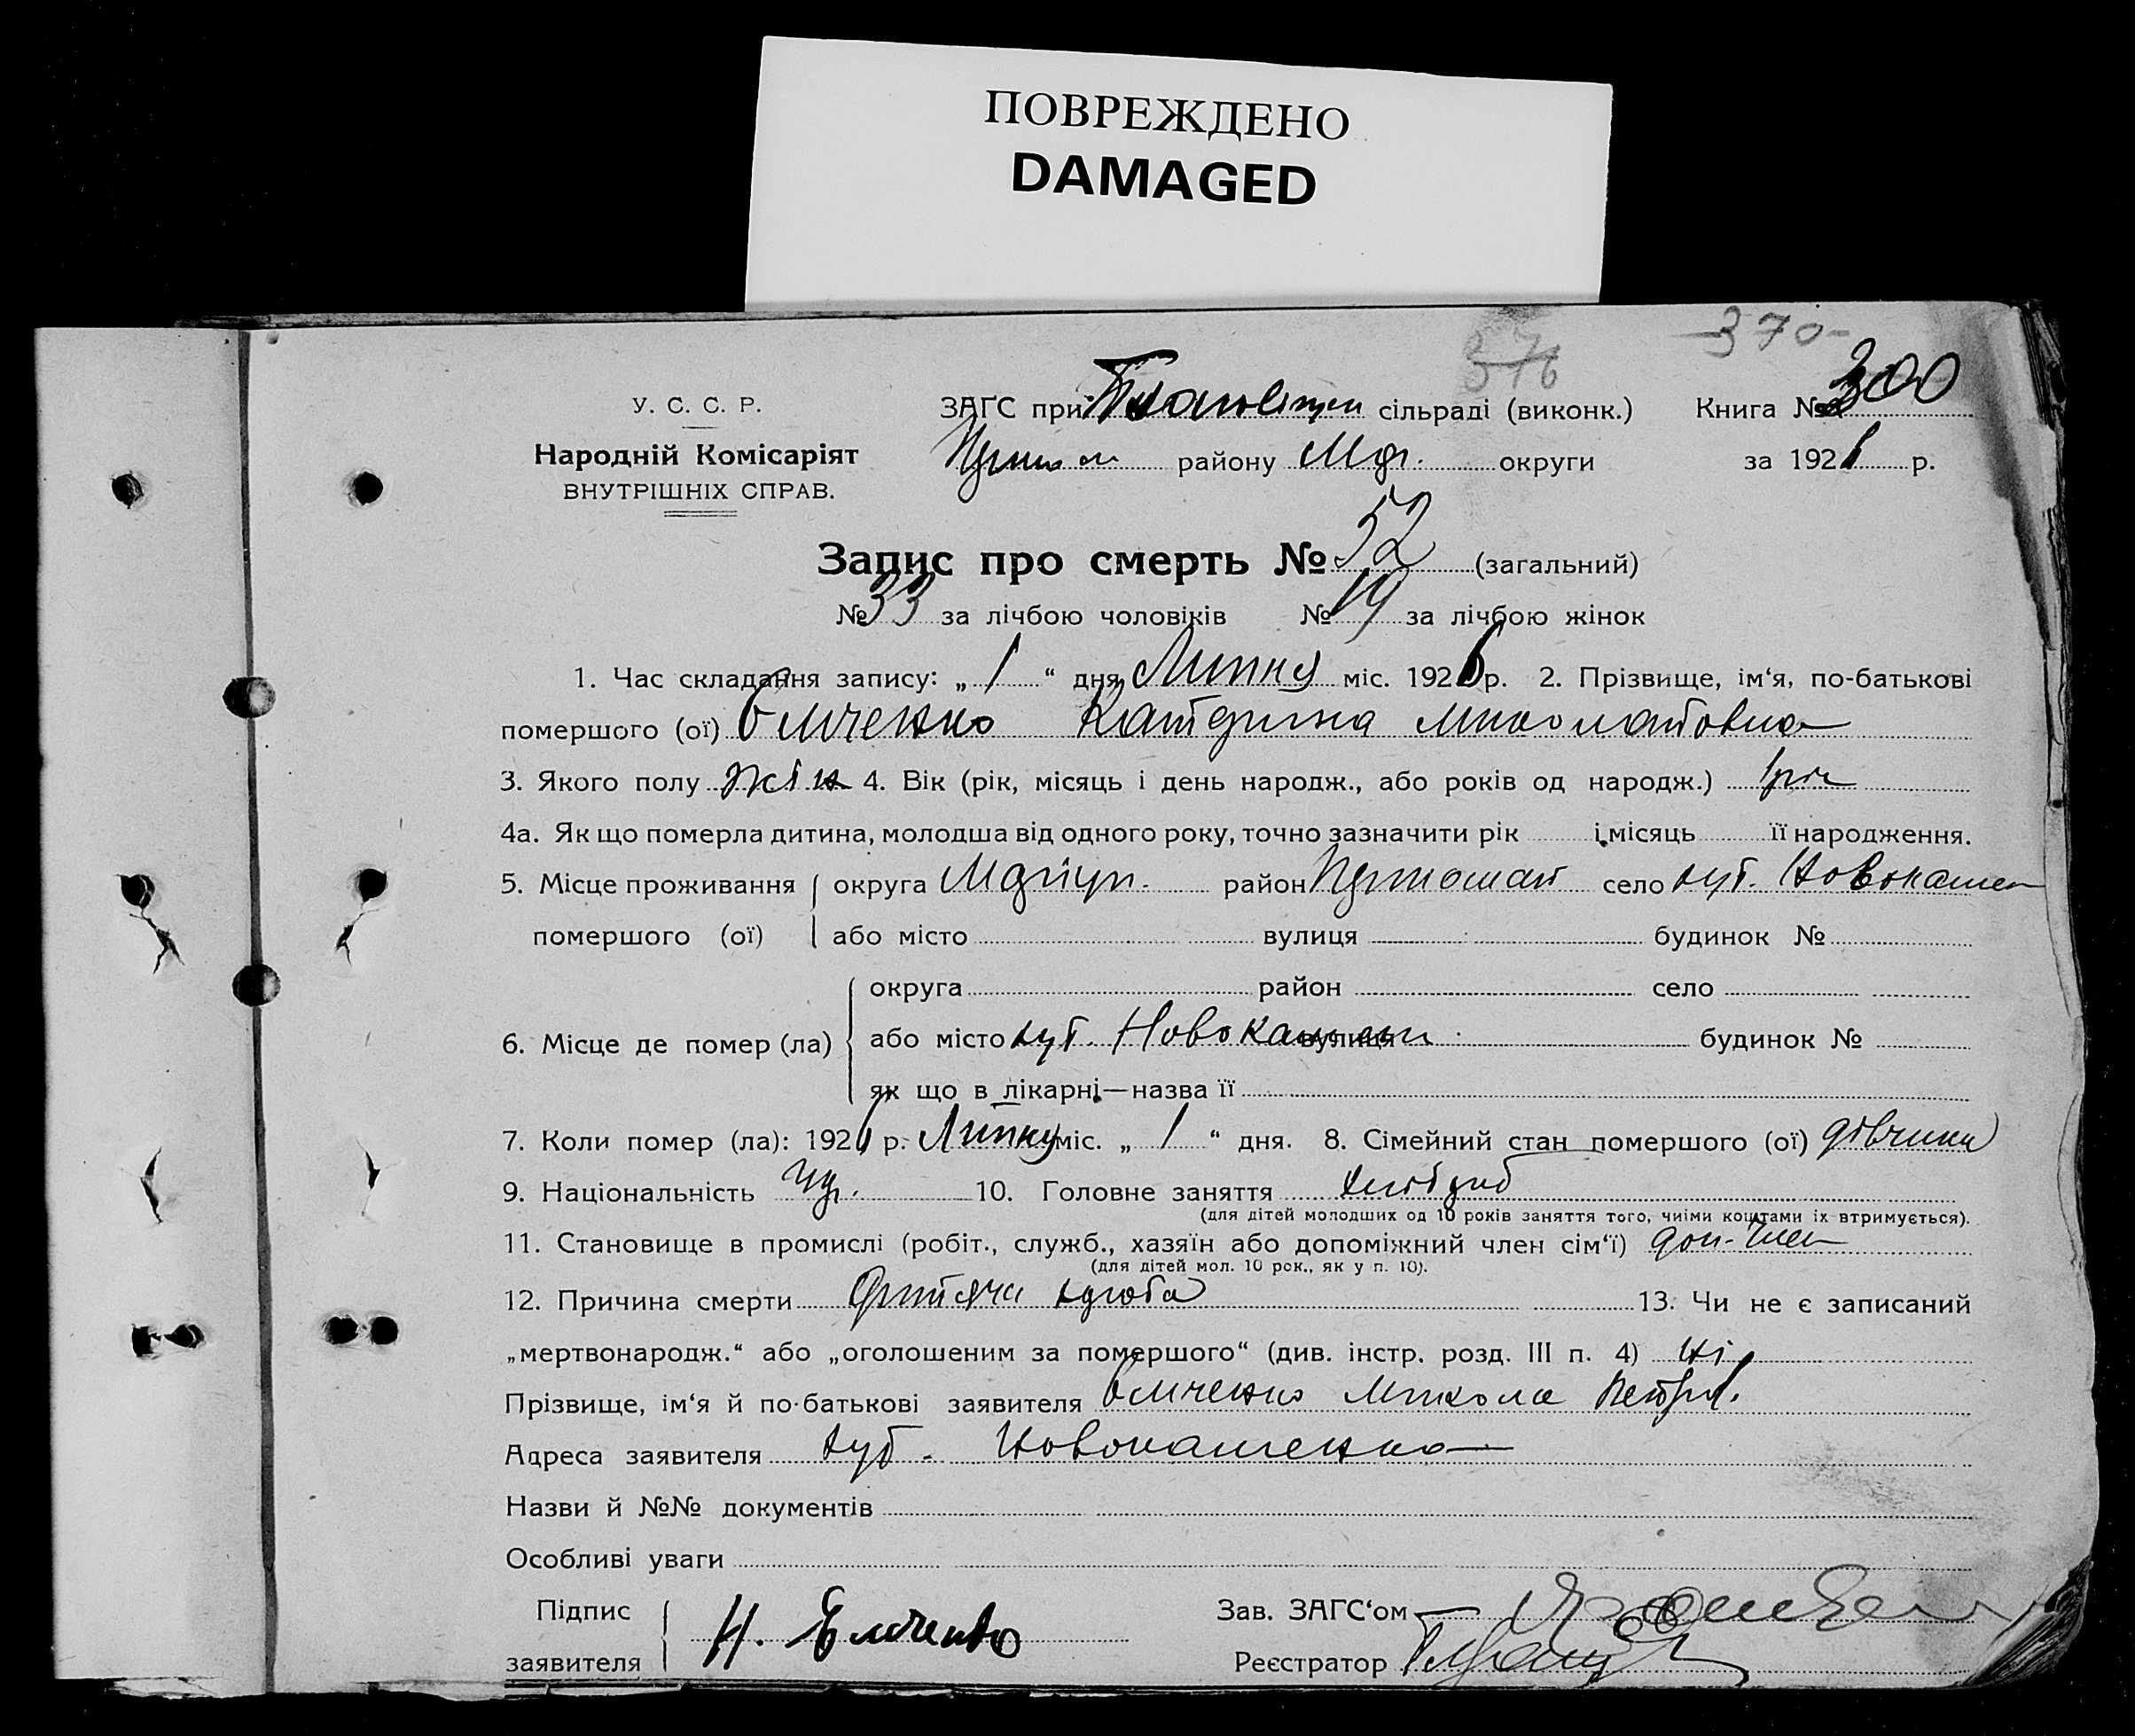 ПОВРЕЖДЕНО
DAMAGED
370-
376
У. С. С. Р.
Народній Комісаріят
ВНУТРІШНІХ СПРАВ.
ЗАГС при сільраді (виконк.) Книга № 300
району округи за 1926 р.
Запис про смерть № 52 (загальний)
№ 33 за лічбою чоловіків № 19 за лічбою жінок
1. Час складання запису: „ 1 “ дня Липня міс. 1926 р. 2. Прізвище, ім‘я, по-батькові
помершого (ої) Єличенко Катерина Миколаївна
3. Якого полу жін 4. Вік (рік, місяць і день народж., або років од народж.) 1 рік
4а. Як що померла дитина, молодша від одного року, точно зазначити рік і місяць її народження.
5. Місце проживання округа Маріуп. район Першотрав село хут. Новокашен
помершого (ої) або місто вулиця будинок №
округа район село
6. Місце де помер (ла) або місто хут. вулиця будинок №
як що в лікарні—назва її
7. Коли помер (ла): 1926 р. Липня міс. „ 1 “ дня. 8. Сімейний стан помершого (ої) дівчина
9. Національність Укр. 10. Головне заняття хлібороб
(для дітей молодших од 10 років заняття того, чиїми коштами їх втримується).
11. Становище в промислі (робіт., служб., хазяїн або допоміжний член сім‘ї) доп. член
(для дітей мол. 10 рок., як у п. 10).
12. Причина смерти Дитяча хороба 13. Чи не є записаний
„мертвонародж.“ або „оголошеним за помершого“ (див. інстр. розд. III п. 4) Ні
Прізвище, ім‘я й по-батькові заявителя Єличенко Микола Петров.
Адреса заявителя хут. Новокашенка
Назви й №№ документів
Особливі уваги
Підпис Зав. ЗАГС‘ом
Н. Єличенко
заявителя Реєстратор